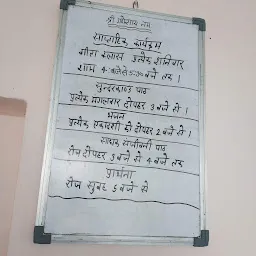 श्री गणेशाय नमः
साप्ताहिक कार्यक्रम
गीता क्लास प्रत्येक शनिवार
शाम 4 बजे से 5 बजे तक।
सुन्दरकाण्ड पाठ
प्रत्येक मंगलवार दोपहर 3 बजे से।
भजन
प्रत्येक एकादशी को दोपहर 2 बजे से।
साधक संजीवनी पाठ
रोज दोपहर 3 बजे से 4 बजे तक
प्रार्थना
रोज सुबह 5 बजे से